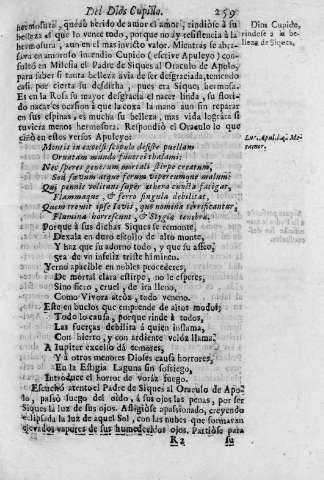 Del Dios Cupido. 259
hermosura, quedò herido de amor el amor, rindiòse à su
belleza el que lo vence todo, porque no ay resistencia à la
hermosura, aun en el mas invicto valor. Mientras se abra-
sava en amoroso incendio Cupido (escrive Apuleyo) con-
sultò en Milesia el Padre de Siques al Oraculo de Apolo,
para saber si tanta belleza avia de ser desgraciada, teniendo
casi por cierta su desdicha, pues era Siques hermosa.
Es en la Rosa su mayor desgracia el nacer linda, su flori-
do nacar es ocasion à que la coxa la mano aun sin reparar
en sus espinas, es mucha su belleza, mas vida lográra si
tuviera menos hermosura. Respondiò el Oraculo lo que
citò en estos versos Apuleyo:
Dios Cupido,
rindese à la be-
lleza de Siques.
Luc. Apul. lib. 4. Me-
tamor.
Montis in excelsi scopulo desiste puellam
Ornatam mundo funerei thalami:
Nec speres generum mortali stirpe creatum,
Sed sævum atque ferum vipereumque malum:
Qui pennis volitans super æthera cuncta fatigat,
Flammaque, & ferro singula debilitat,
Quem tremit ipse Iovis, quo numina terrificantur,
Flumina horrescunt, & Stygiæ tenebræ.
Porque à sus dichas Siques se remonte,
Dexala en duro escollo de alto monte,
Y haz que su adorno todo, y que su asseo,
Sea de vn infeliz triste himineo.
Yerno apacible en nobles procederes,
De mortal clara estirpe, no le esperes,
Sino fiero, cruel, de ira lleno,
Como Vivora atròz, todo veneno.
Este en buelos que emprende de altos modos,
Todo lo causa, porque rinde à todos,
Las fuerças debilita à quien inflama,
Con hierro, y con ardiente veloz llama.
A Iupiter excelso dà temores,
Y à otros menores Dioses causa horrores,
En la Estigia Laguna sin sossiego,
Introduce el horror de voraz fuego.
Escuchò atento el Padre de Siques al Oraculo de Apo-
lo, passò luego del oìdo, à sus ojos las penas, por ser
Siques la luz de sus ojos. Afligiòse apassionado, creyendo
eclipsada la luz de aquel Sol, con las nubes que formavan
elevados vapores de sus humedecidos ojos. Partiòse para
R 2 su